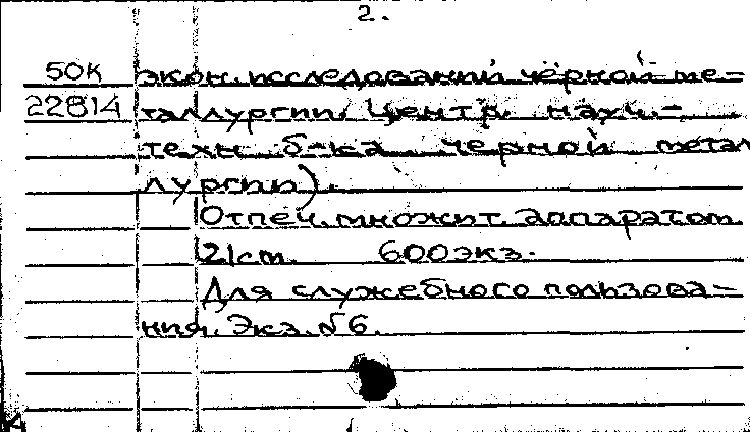 2.
50К экон. исследований чёрной ме-
22814 таллургии. Центр. науч.-
техн б-ка черной метал
лургии).
Отпеч. множит. аппаратом.
21см. 600экз.
Для служебного пользова-
ния. Экз. №6.